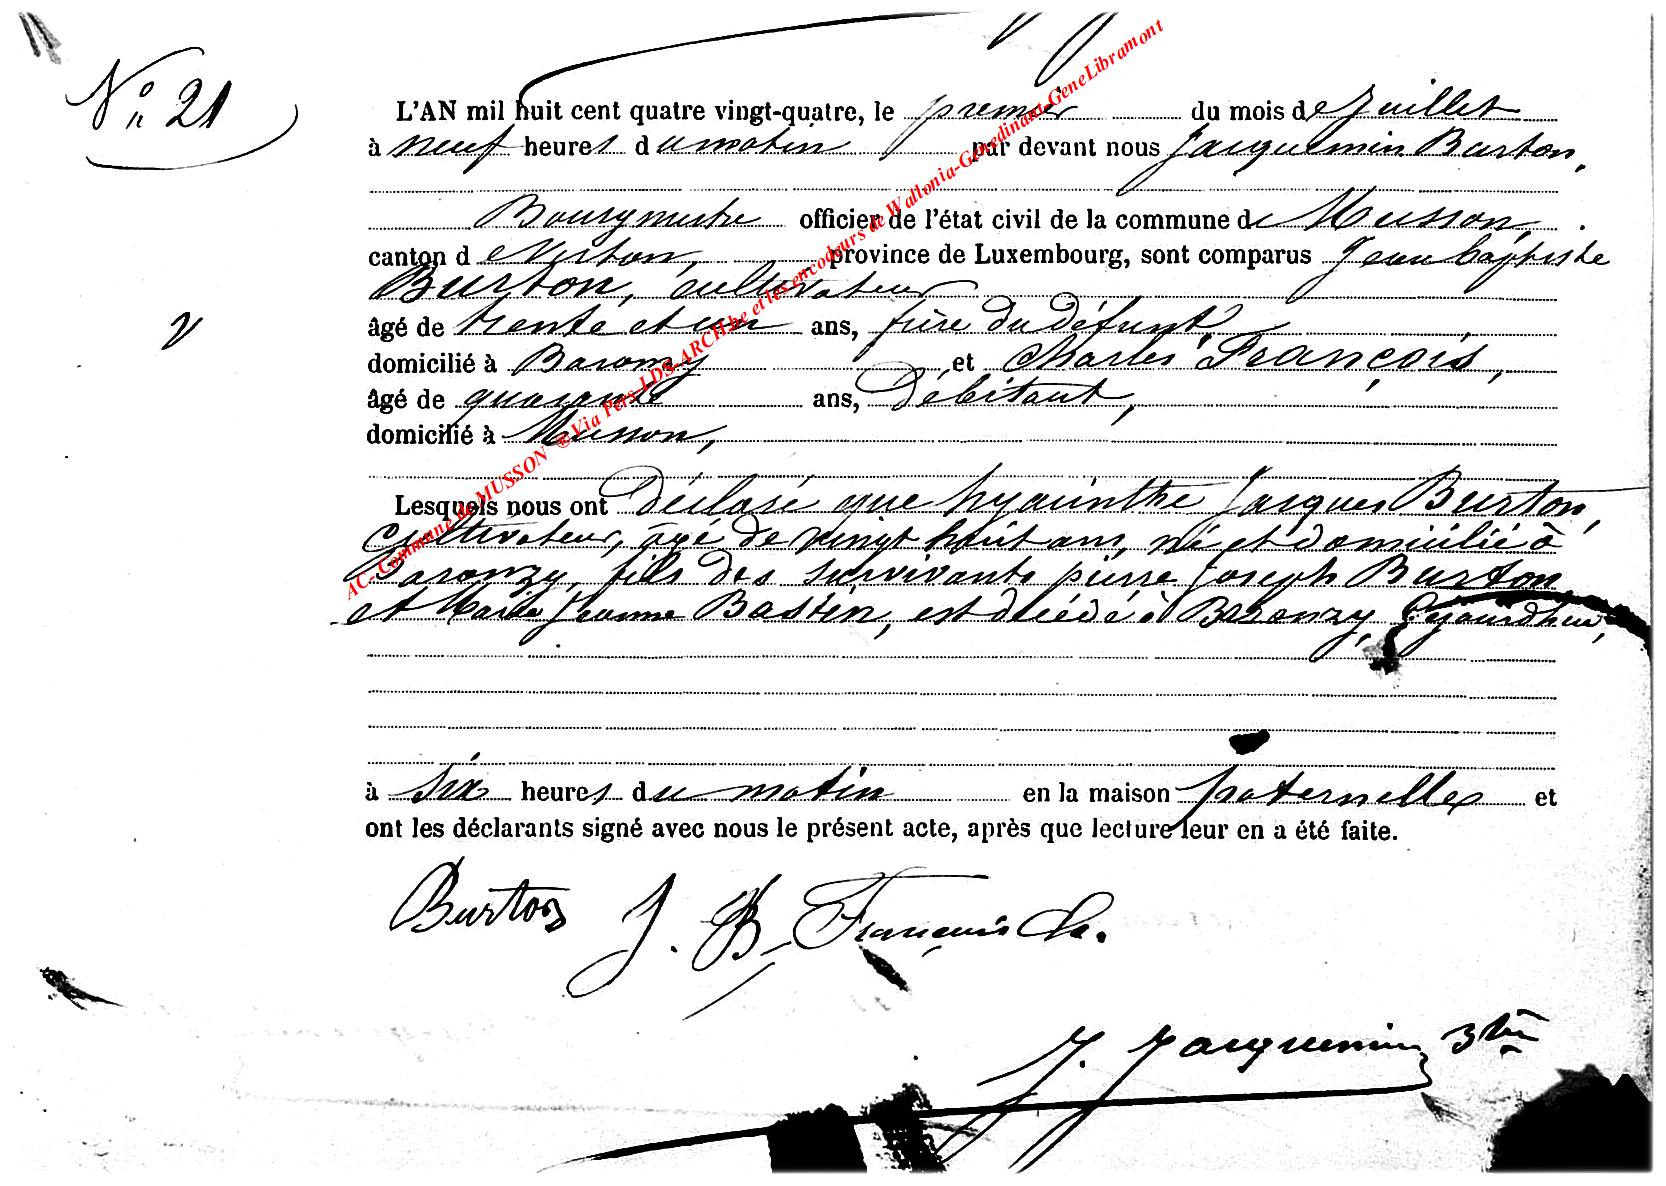 N° 21
L'AN mil huit cent quatre vingt-quatre, le premier du mois de Juillet
à neuf heures du matin par devant nous Jacquemin Burton,
Bourgmestre officier de l'état civil de la commune de Musson,
canton d e Virton, province de Luxembourg, sont comparus Jean baptiste
Burton, cultivateur
âgé de trente et un ans, frère du défunt,
domicilié à Baronzy et Charles François,
âgé de quarante ans, Débitant,
domicilié à Musson,
Lesquels nous ont déclaré que hyacinthe Jacques Burton,
Cultivateur, âgé de vingt huit ans, né et domicilié à
Baronzy, fils des survivants pierre Joseph Burton
et Marie Jeanne Bastin, est décédé à Baronzy, Cejourdhui,
à six heures du matin en la maison paternelle et
ont les déclarants signé avec nous le présent acte, après que lecture leur en a été faite.
Burton J. B. François Ch.
J. Jacquemin
AC-Commune de MUSSON ®Via Pers-LDS-ARCH.be et les encodeurs de Wallonia-Genedinant-GeneLibramont